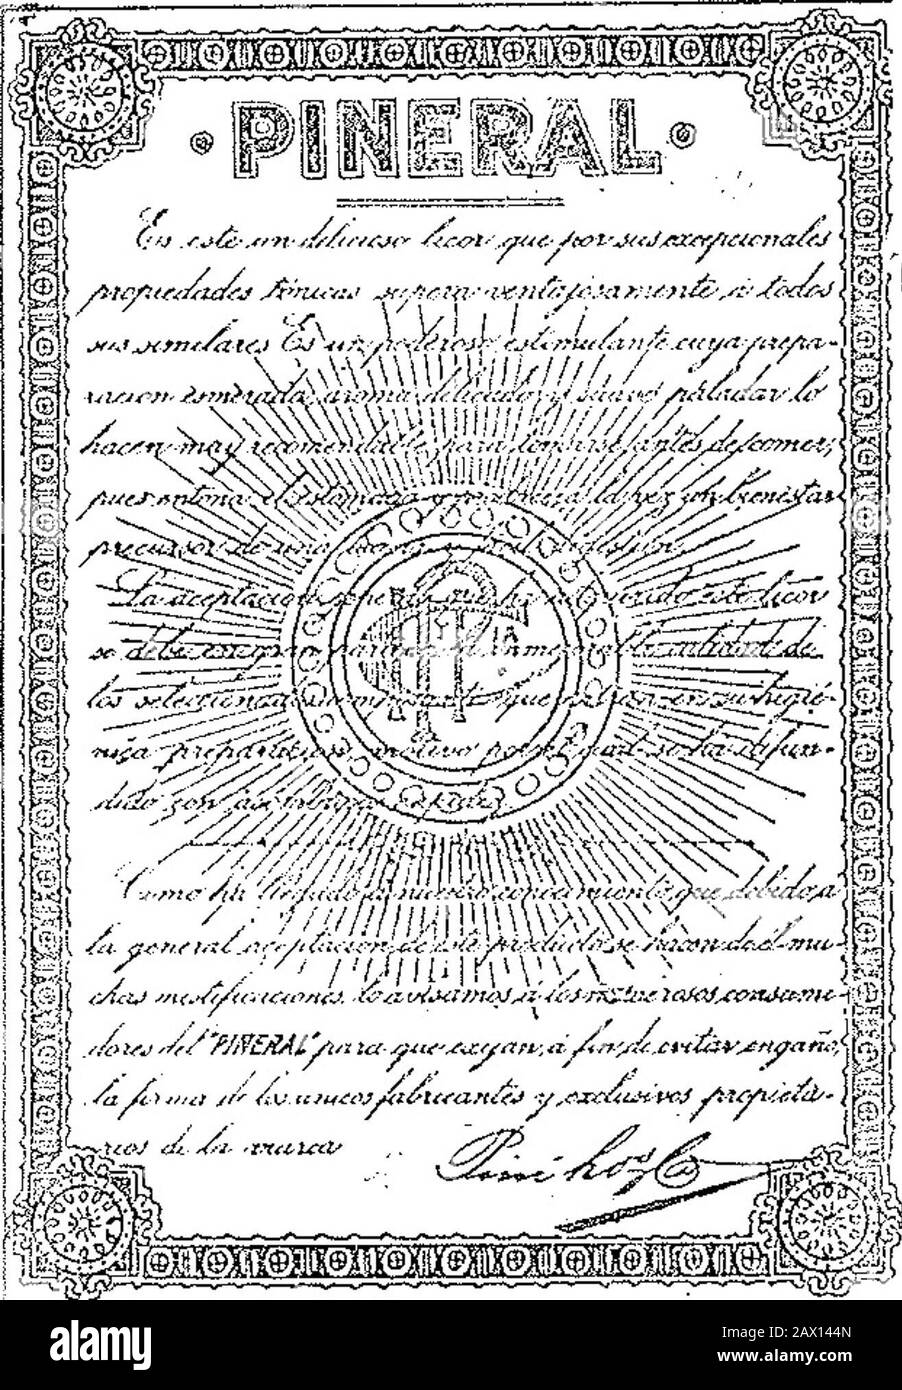 PINERAL
Es este un delicioso licor que por sus excepcionales
propiedades tónicas supera ventajosamente á todos
sus similares Es un poderoso estimulante cuya prepa-
racion esmerada, aroma delicado y suave paladar lo
hacen muy recomendable para tomarse antes de comer,
pues entona el estómago y produce á la vez un bienestar
precursor de una buena y fácil digestion.
La aceptacion general que ha este licor
se debe en gran á la inmejorable calidad de
los seleccionados que en su higié-
nica preparacion, motivo por el cual se ha difun-
dido con asombrosa rapidez.
Como ha llegado á nuestro conocimiento que debido á
la general aceptacion de este producto se hacen de él mu-
chas mistificaciones, lo avisamos á los numerosos consumi-
dores del "PINERAL" para que exijan, á fin de evitar engaño,
la firma de los unicos fabricantes y exclusivos propieta-
rios de la marca
Pini hos y Ca
CIA
alamy
Image ID: 2AX144N
www.alamy.com